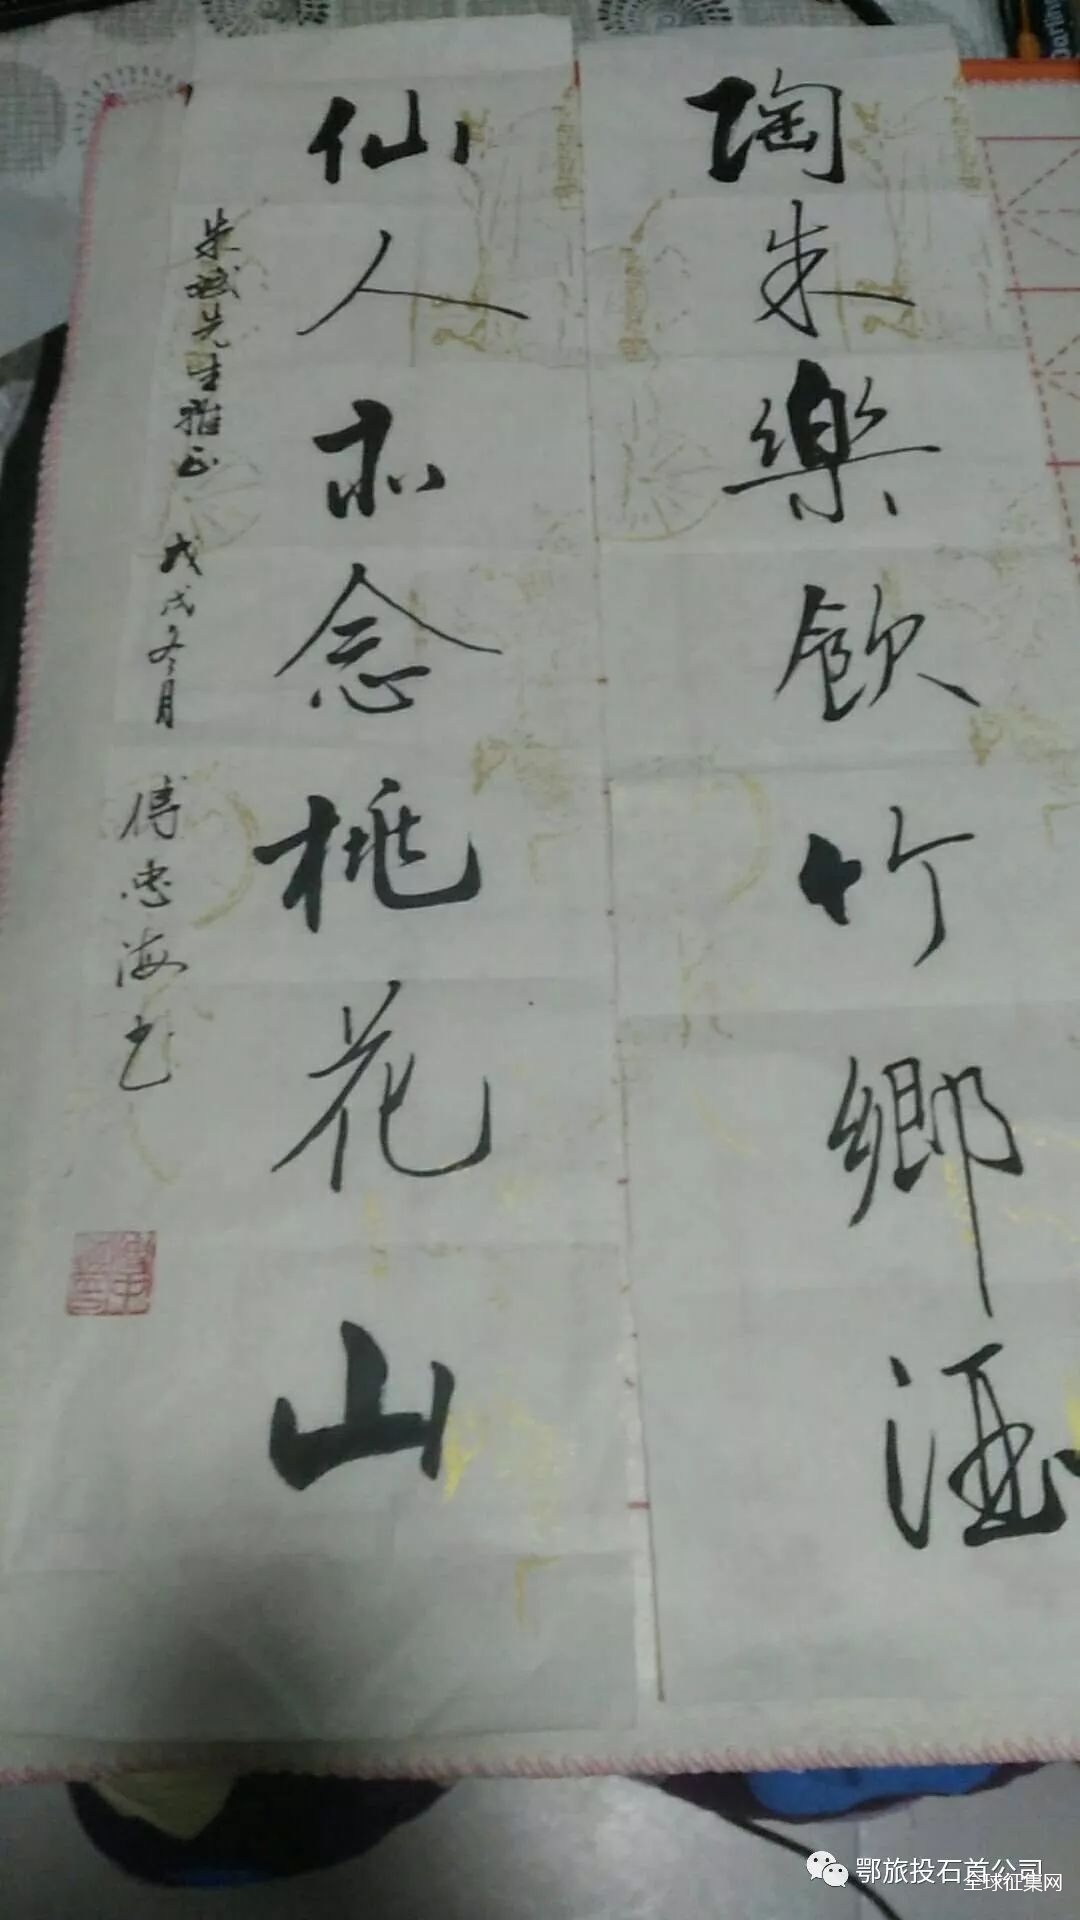 陶朱樂飲竹鄉酒
仙人亦念桃花山
朱斌先生雅正 戊戌冬月 傅忠海书
鄂旅投石首公司
全球征集网